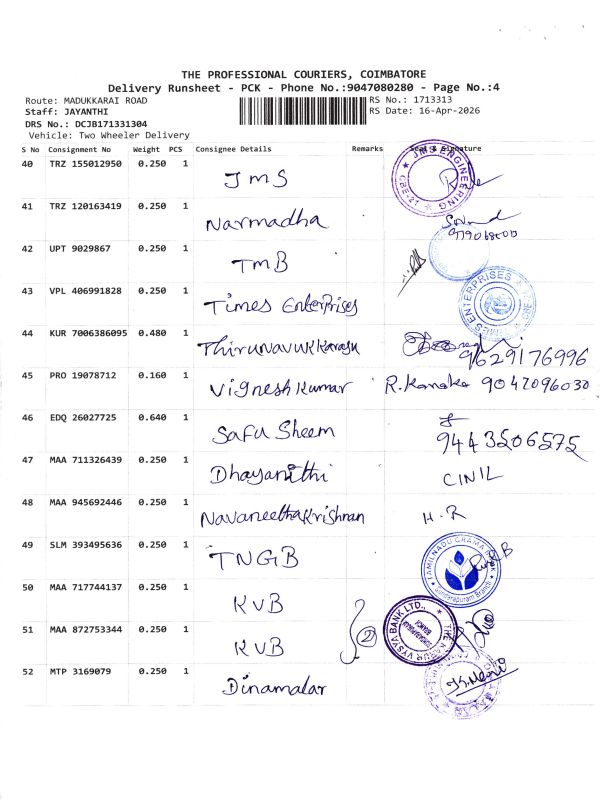 THE PROFESSIONAL COURIERS, COIMBATORE
Delivery Runsheet - PCK - Phone No.:9047080280 - Page No.:4
Route: MADUKKARAI ROAD
Staff: JAYANTHI
DRS No.: DCJB171331304
Vehicle: Two Wheeler Delivery
RS No.: 1713313
RS Date: 16-Apr-2026
S No Consignment No Weight PCS Consignee Details Remarks Seal & Signature
40 TRZ 155012950 0.250 1 JMS
JMS ENGINEERING CBE-21
41 TRZ 120163419 0.250 1 Narmadha
42 UPT 9029867 0.250 1 TMB
43 VPL 406991828 0.250 1 Times Enterprises
44 KUR 7006386095 0.480 1 Thirunavukkarasu 9629176996
45 PRO 19078712 0.160 1 Vignesh Kumar R. Kanaka 9047096030
46 EDQ 26027725 0.640 1 Safu Sheem 9443506575
47 MAA 711326439 0.250 1 Dhayanithi CINIL
48 MAA 945692446 0.250 1 Navaneethakrishnan H.R
49 SLM 393495636 0.250 1 TNGB
TAMILNADU GRAMA BANK Sundarapuram Branch
50 MAA 717744137 0.250 1 KVB
THE KARUR VYSYA BANK LTD.,
51 MAA 872753344 0.250 1 KVB 2
52 MTP 3169079 0.250 1 Dinamalar